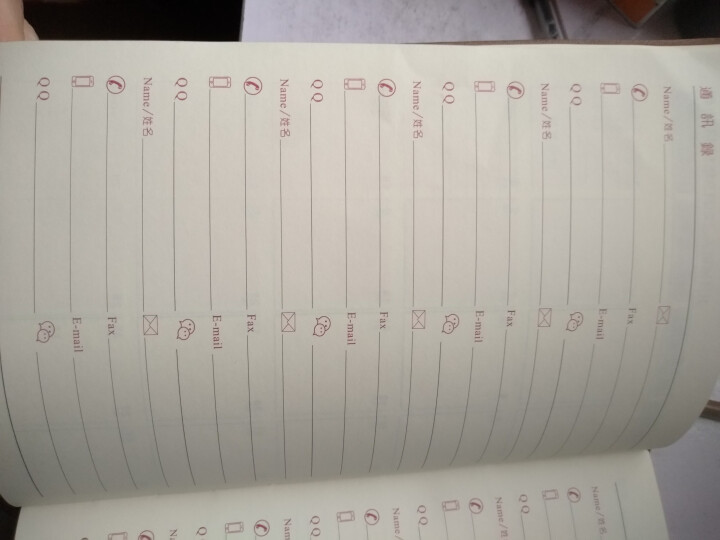 通訊錄
Name/姓名
Fax
E-mail
Q Q
Name/姓名
Fax
E-mail
Q Q
Name/姓名
Fax
E-mail
Q Q
Name/姓名
Fax
E-mail
Q Q
Name/姓名
Fax
E-mail
Q Q
Name/姓名
Q Q
Name/姓
Q Q
Name/
Q Q
Name
Q